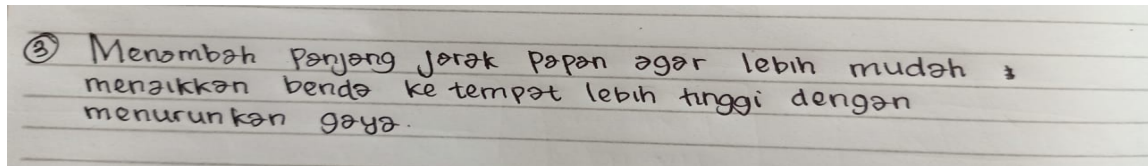 ③ Menambah Panjang Jarak Papan agar lebih mudah
menaikkan benda ke tempat lebih tinggi dengan
menurunkan gaya.